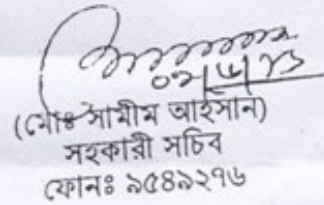 (মোঃ সামীম আহসান)
সহকারী সচিব
ফোনঃ ৯৫৪৯২৭৬